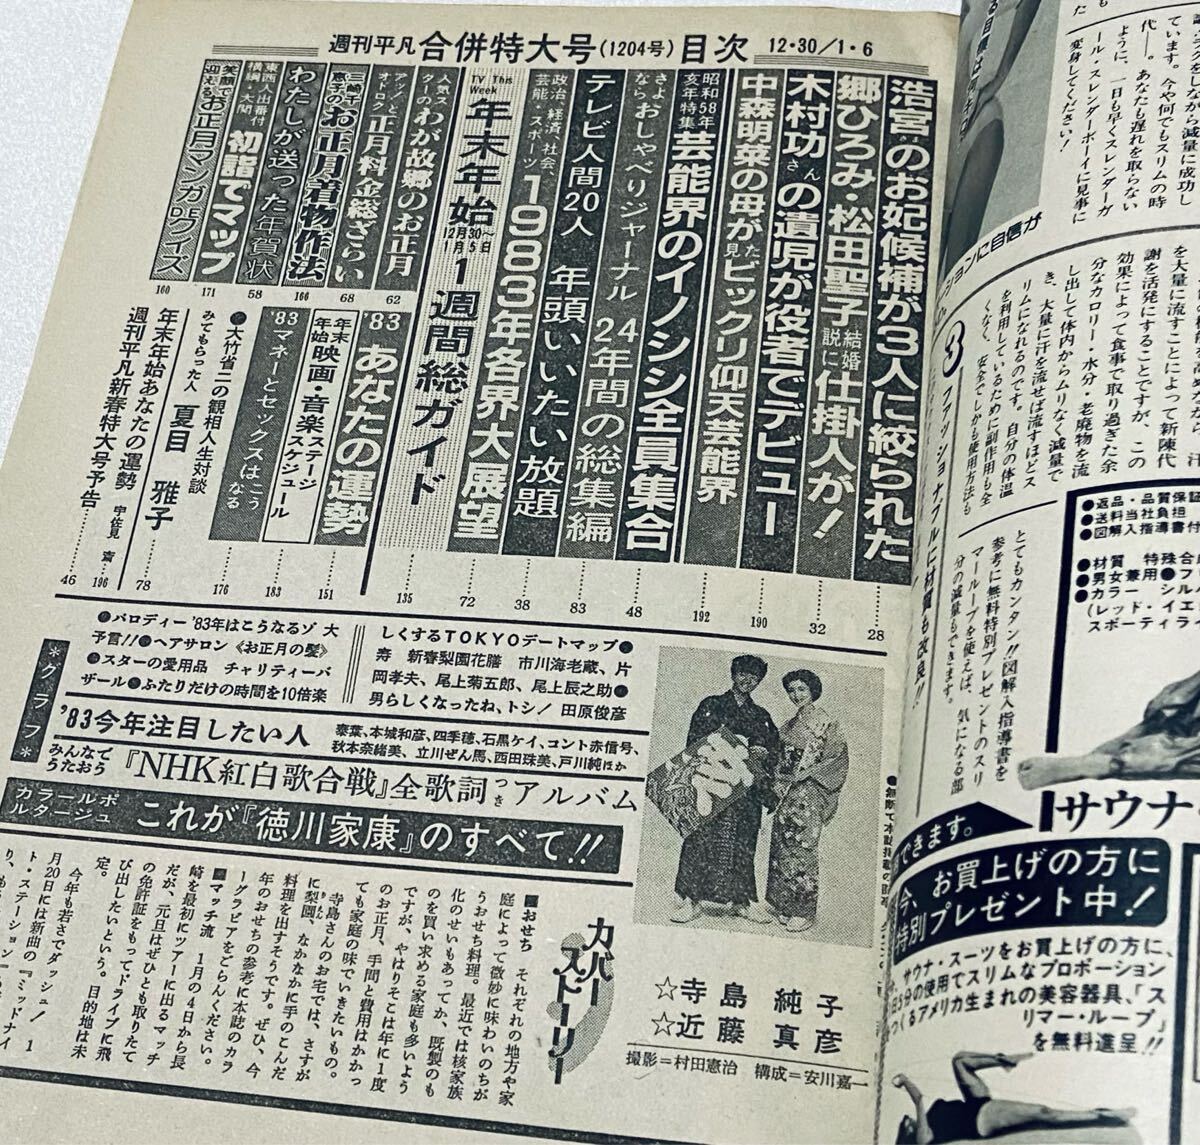 週刊平凡 合併特大号(1204号) 目次 12・30/1・6
浩宮のお妃候補が3人に絞られた
28
郷ひろみ・松田聖子結婚説に仕掛人が!
32
木村功さんの遺児が役者でデビュー
190
中森明菜の母が見たビックリ仰天芸能界
192
昭和58年亥年特集 芸能界のイノシシ全員集合
48
さよなら おしゃべりジャーナル 24年間の総集編
83
テレビ人間20人 年頭いいたい放題
38
政治、経済、社会、芸能・スポーツ 1983年各界大展望
72
TV This Week 年末年始 12月30日〜1月5日 1週間総ガイド
135
人気スターの わが故郷のお正月
62
アッとオドロく 正月料金総ざらい
68
三崎千恵子の お正月着物作法
166
わたしが送った年賀状
58
東西人出番付 横綱・大関 初詣でマップ
171
笑顔で迎える お正月マンガDEワイズ
160
'83 あなたの運勢
151
年末年始 映画・音楽ステージスケジュール
183
'83マネーとセックスはこうなる
176
●大竹省二の観相人生対談
みてもらった人 夏目 雅子
78
年末年始あなたの運勢 宇佐見 斎
196
週刊平凡新春特大号予告
46
*グラフ*
●パロディー'83年はこうなるゾ 大
予言!!●ヘアサロン《お正月の髪》
●スターの愛用品 チャリティーバ
ザール●ふたりだけの時間を10倍楽
しくするTOKYOデートマップ●
寿 新春梨園花膳 市川海老蔵、片
岡孝夫、尾上菊五郎、尾上辰之助●
男らしくなったね、トシ! 田原俊彦
'83今年注目したい人
泰葉、本城和彦、四季穂、石黒ケイ、コント赤信号、
秋本奈緒美、立川ぜん馬、西田珠美、戸川純ほか
みんなでうたおう『NHK紅白歌合戦』全歌詞つきアルバム
カラールポルタージュ これが『徳川家康』のすべて!!
カバーストーリー
■おせち それぞれの地方や家
庭によって微妙に味わいのちが
うおせち料理。最近では核家族
化のせいもあってか、既製のも
のを買い求める家庭も多いよう
ですが、やはりそこは年に1度
のお正月、手間と費用はかかっ
ても家庭の味でいきたいもの。
寺島さんのお宅では、さすが
に梨園、なかなかに手のこんだ
料理を出すそうです。ぜひ、今
年のおせちの参考に本誌のカラ
ーグラビアをごらんください。
■マッチ流 1月の4日から長
崎を最初にツアーに出るマッチ
だが、元旦はぜひとも取りたて
の免許証をもってドライブに飛
び出したいという。目的地は未
定。
今年も若さでダッシュ! 1
月20日には新曲の『ミッドナイ
ト・ステーション』
☆寺島 純子
☆近藤 真彦
撮影=村田憲治 構成=安川嘉一
から減量に成功し
ています。今や何でもスリムの時
代——。あなたも遅れを取らない
ように、一日も早くスレンダーガ
ール・スレンダーボーイに見事に
変身してください!
3 ファッショナブルに材質も改良!!
を大量に流すことによって新陳代
謝を活発にすることですが、この
効果によって食事で取り過ぎた余
分なカロリー・水分・老廃物を流
し出して体内からムリなく減量で
き、大量に汗を流せば流すほどス
リムになれるのです。自分の体温
を利用しているために副作用も全
くなく、安全でしかも使用方法も
とてもカンタン!!図解入指導書を
参考に無料特別プレゼントのスリ
マーループを使えば、気になる部
分の減量もできます。
●返品・品質保証
●送料当社負担
●図解入指導書付
●材質 特殊合成
●男女兼用●フリ
●カラー シルバ
(レッド・イエ
スポーティライ
サウナ
できます。
今、お買上げの方に
特別プレゼント中!
サウナ・スーツをお買上げの方に、
1日5分の使用でスリムなプロポーション
つくるアメリカ生まれの美容器具、「ス
リマー・ループ」
を無料進呈!!